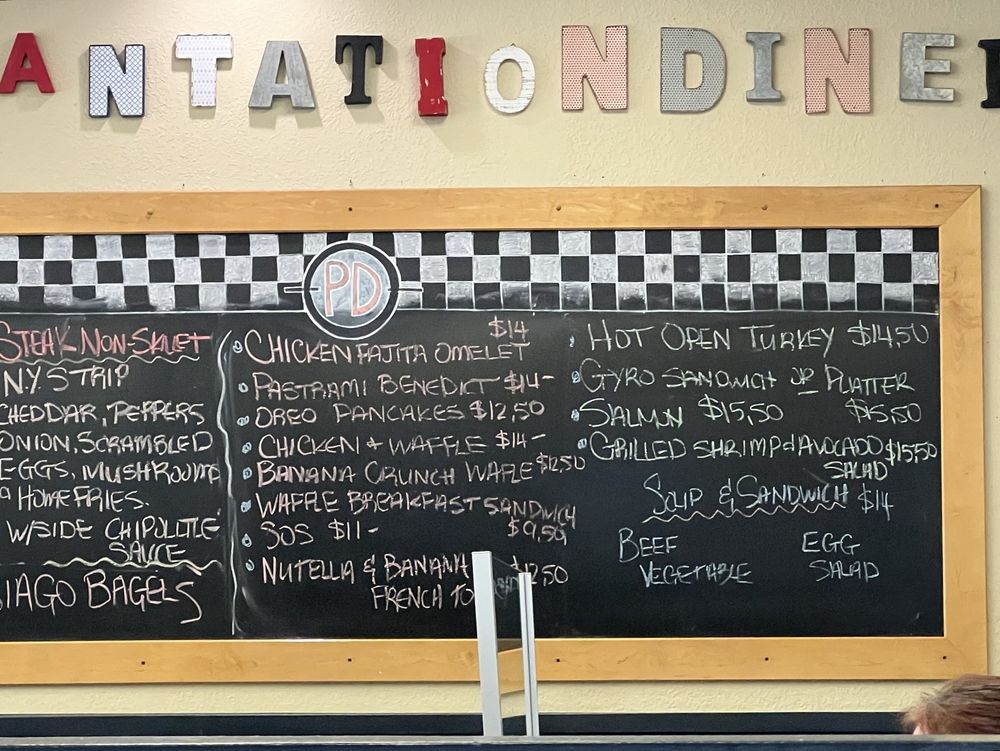 ANTATION DINE
PD
STEAK NON-SKILET
N.Y. STRIP
CHEDDAR, PEPPERS
ONION, SCRAMBLED
EGGS, MUSHROOMS
HOMEFRIES.
W/SIDE CHIPOLTLE
SAUCE
IAGO BAGELS
CHICKEN FAJITA OMELET $14
PASTRAMI BENEDICT $14-
OREO PANCAKES $12,50
CHICKEN + WAFFLE $14-
BANANA CRUNCH WAFLE $12,50
WAFFLE BREAKFAST SANDWICH
SOS $11- $9,50
NUTELLA & BANANA 12.50
FRENCH TO
HOT OPEN TURKEY $14,50
GYRO SANDWICH OR PLATTER
SALMON $15,50 $15,50
GRILLED SHRIMP & AVOCADO $15,50
SALAD
SOUP & SANDWICH $14
BEEF EGG
VEGETABLE SALAD